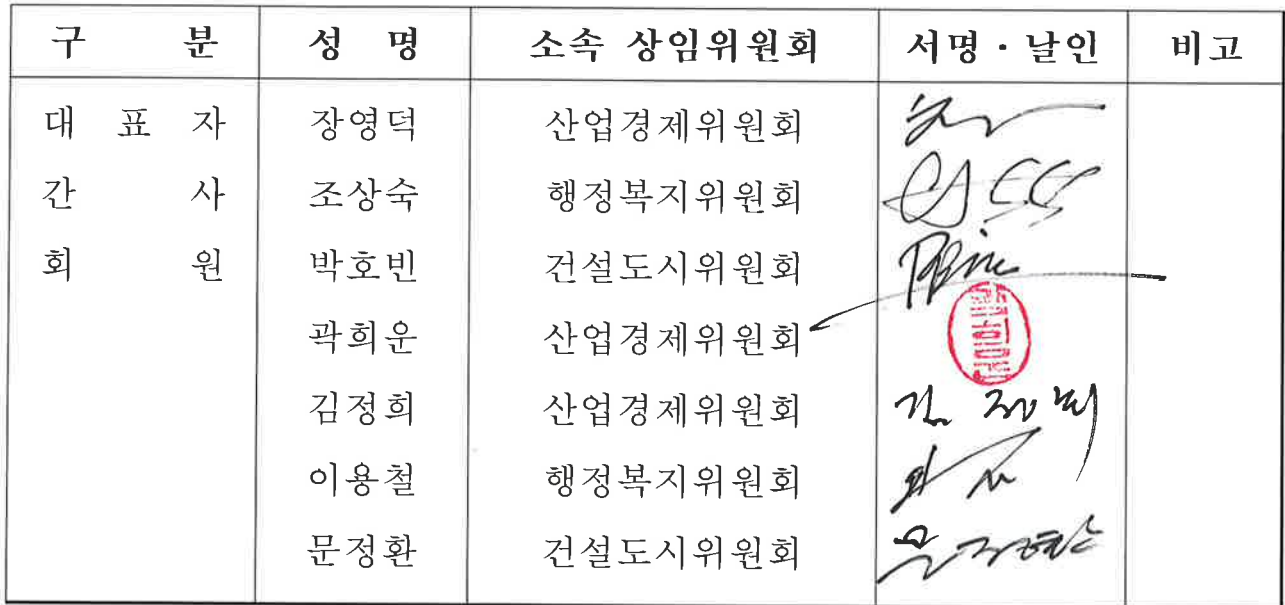 구 분 성 명 소속 상임위원회 서명·날인 비고
대 표 자 장영덕 산업경제위원회
간 사 조상숙 행정복지위원회
회 원 박호빈 건설도시위원회
곽희운 산업경제위원회
김정희 산업경제위원회 김정희
이용철 행정복지위원회
문정환 건설도시위원회 문정환